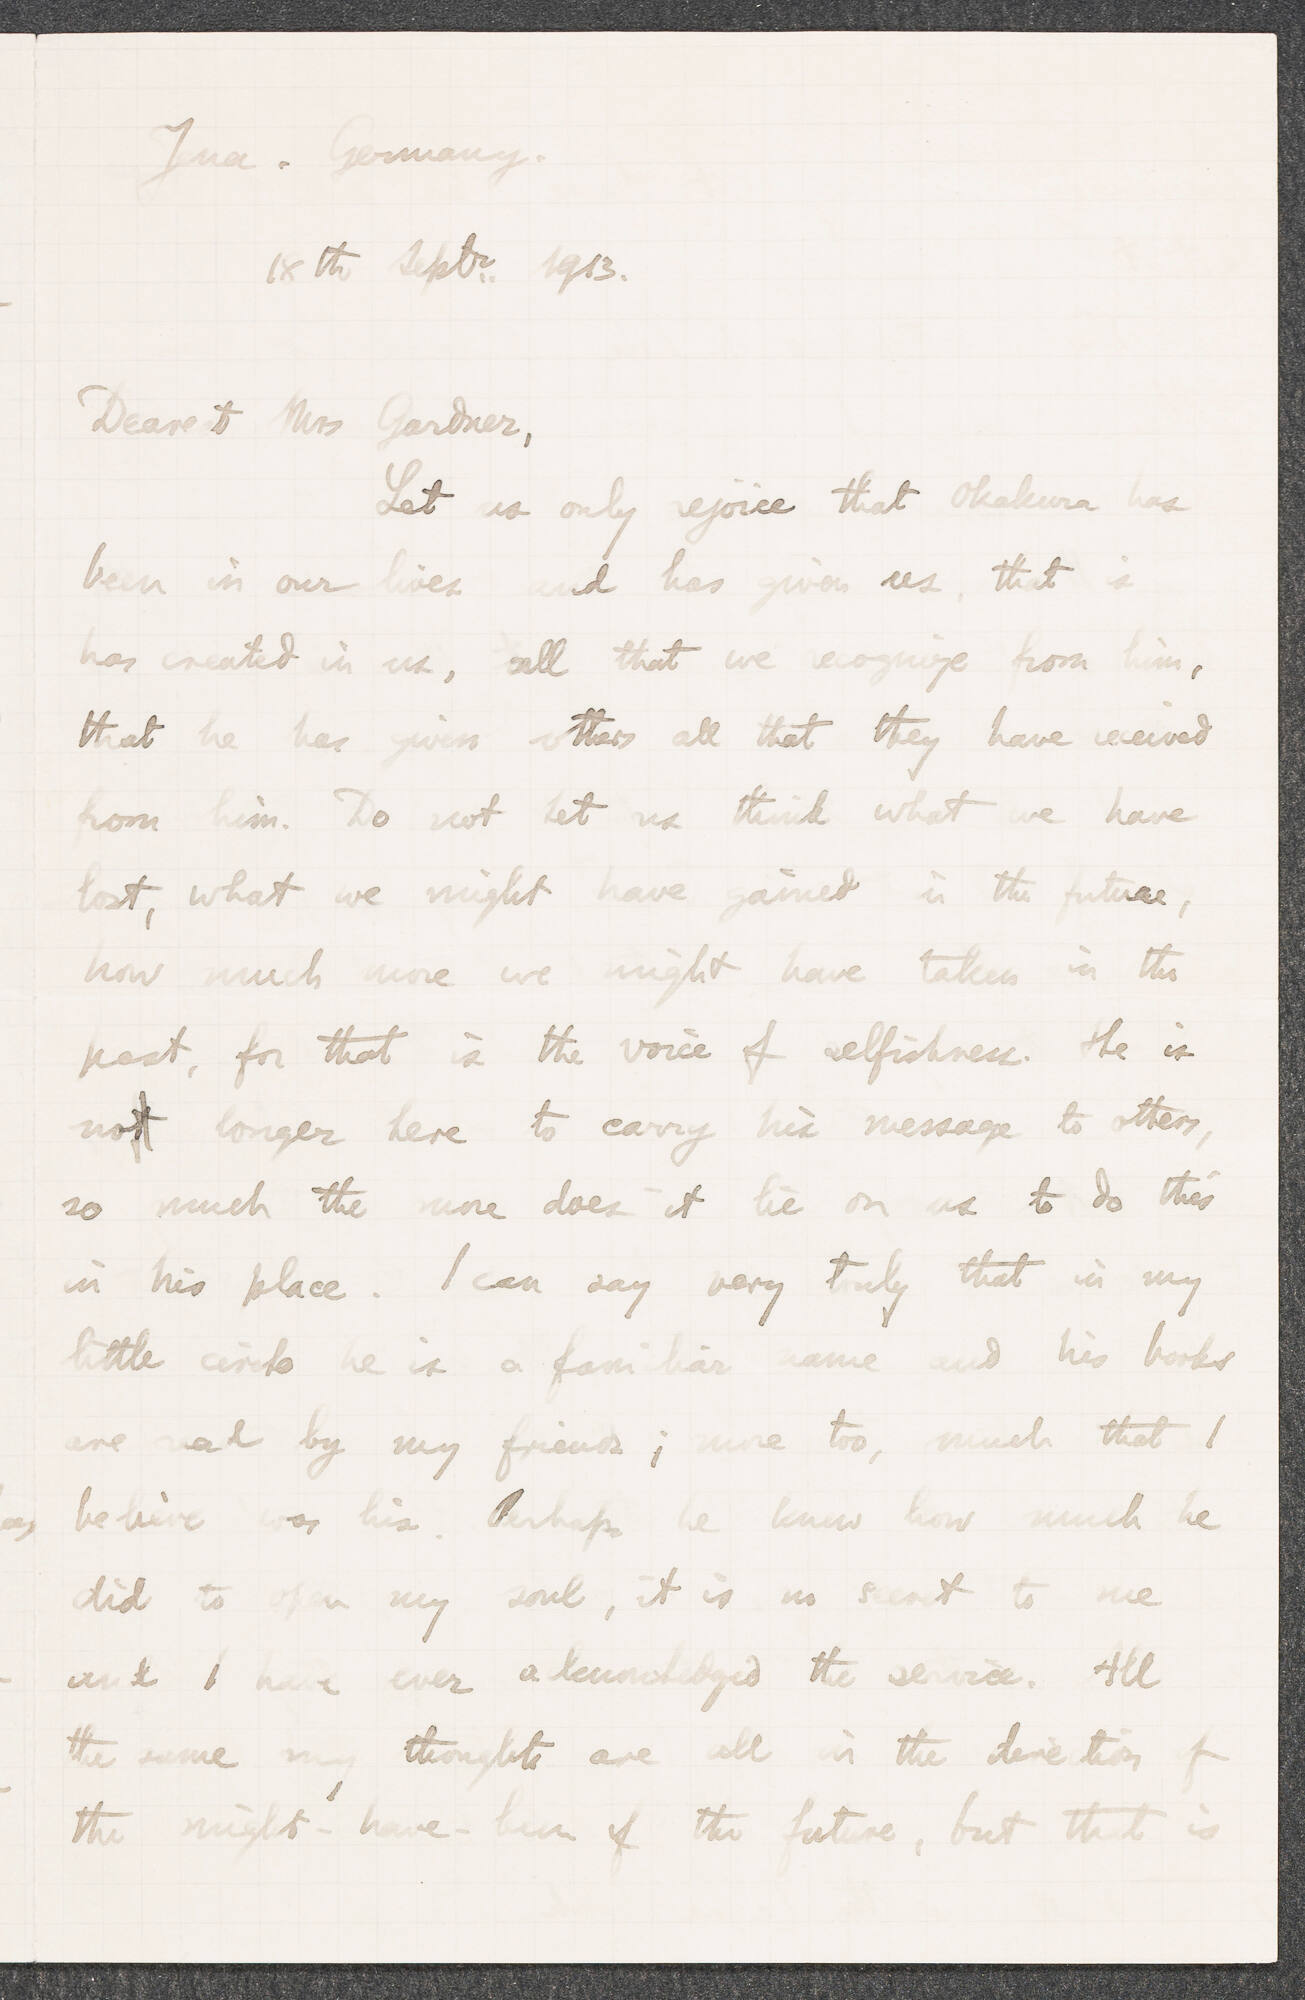 Jena. Germany.
18th Septbr. 1913.
Dearest Mrs Gardner,
Let us only rejoice that Okakura has
been in our lives and has given us, that is
has created in us, all that we recognize from him,
that he has given others all that they have received
from him. Do not let us think what we have
lost, what we might have gained in the future,
how much more we might have taken in the
past, for that is the voice of selfishness. He is
no longer here to carry his message to others,
so much the more does it lie on us to do this
in his place. I can say very truly that in my
little circle he is a familiar name and his books
are read by my friends; more too, much that I
believe was his. Perhaps he knew how much he
did to open my soul, it is no secret to me
and I have ever aknowledged the service. All
the same my thoughts are all in the direction of
the might-have-been of the future, but that is